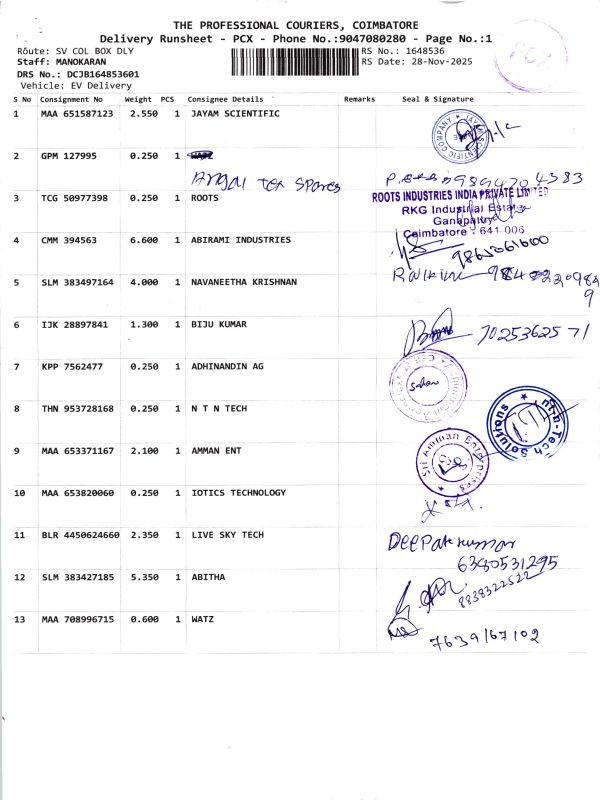 THE PROFESSIONAL COURIERS, COIMBATORE
Delivery Runsheet - PCX - Phone No.:9047080280 - Page No.:1
Route: SV COL BOX DLY RS No.: 1648536
Staff: MANOKARAN RS Date: 28-Nov-2025
DRS No.: DCJB164853601
Vehicle: EV Delivery
S No Consignment No Weight PCS Consignee Details Remarks Seal & Signature
1 MAA 651587123 2.550 1 JAYAM SCIENTIFIC
JAYAM SCIENTIFIC COMPANY
2 GPM 127995 0.250 1
Angal Tex Spares
3 TCG 50977398 0.250 1 ROOTS
ROOTS INDUSTRIES INDIA PRIVATE LIMITED
RKG Industrial Estate
Ganapathy
Coimbatore - 641 006
4 CMM 394563 6.600 1 ABIRAMI INDUSTRIES
5 SLM 383497164 4.000 1 NAVANEETHA KRISHNAN
6 IJK 28897841 1.300 1 BIJU KUMAR
7025362571
7 KPP 7562477 0.250 1 ADHINANDIN AG
8 THN 953728168 0.250 1 N T N TECH
ntn-Tech Solutions
9 MAA 653371167 2.100 1 AMMAN ENT
Sri Amman Enterprises
10 MAA 653820060 0.250 1 IOTICS TECHNOLOGY
11 BLR 4450624660 2.350 1 LIVE SKY TECH
Deepak kumar
6380531295
12 SLM 383427185 5.350 1 ABITHA
8838322522
13 MAA 708996715 0.600 1 WATZ
7639167102